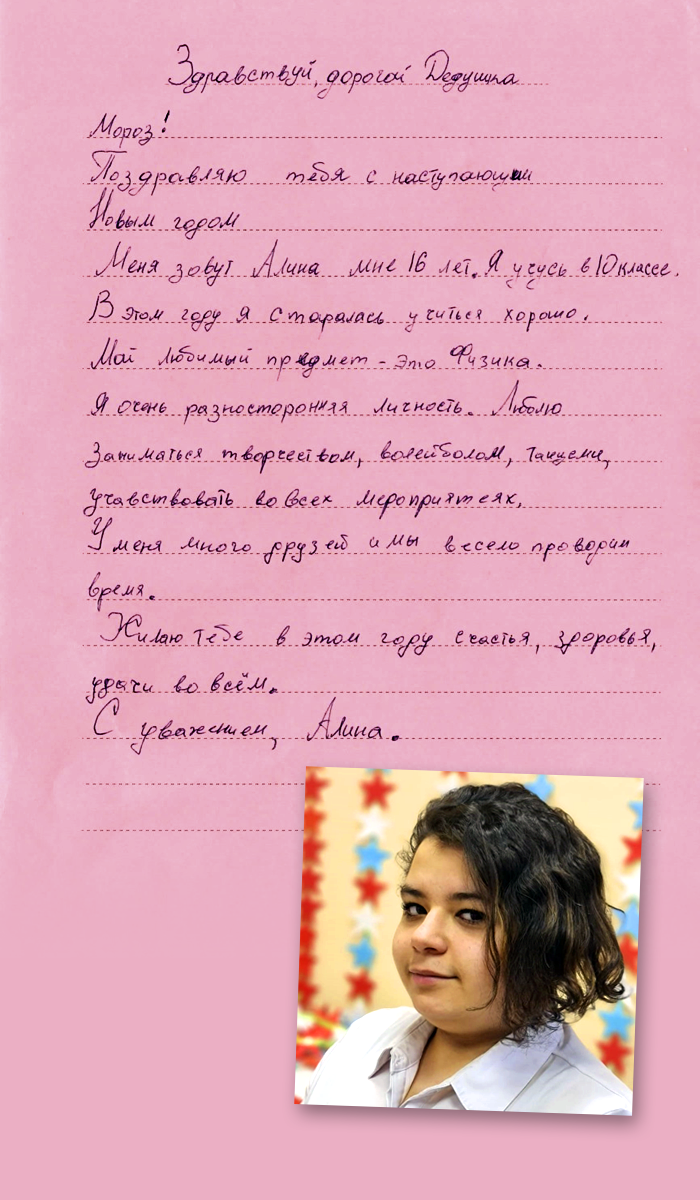 Здравствуй, дорогой Дедушка
Мороз!
Поздравляю тебя с наступающим
Новым годом
Меня зовут Алина мне 16 лет. Я учусь в 10 классе.
В этом году я старалась учиться хорошо.
Мой любимый предмет - это Физика.
Я очень разносторонняя личность. Люблю
Заниматься творчеством, волейболом, танцеми,
учавствовать во всех мероприятеях,
У меня много друзей и мы весело проводим
время.
Жилаю тебе в этом году счастья, здоровья,
удачи во всём.
С уважением, Алина.